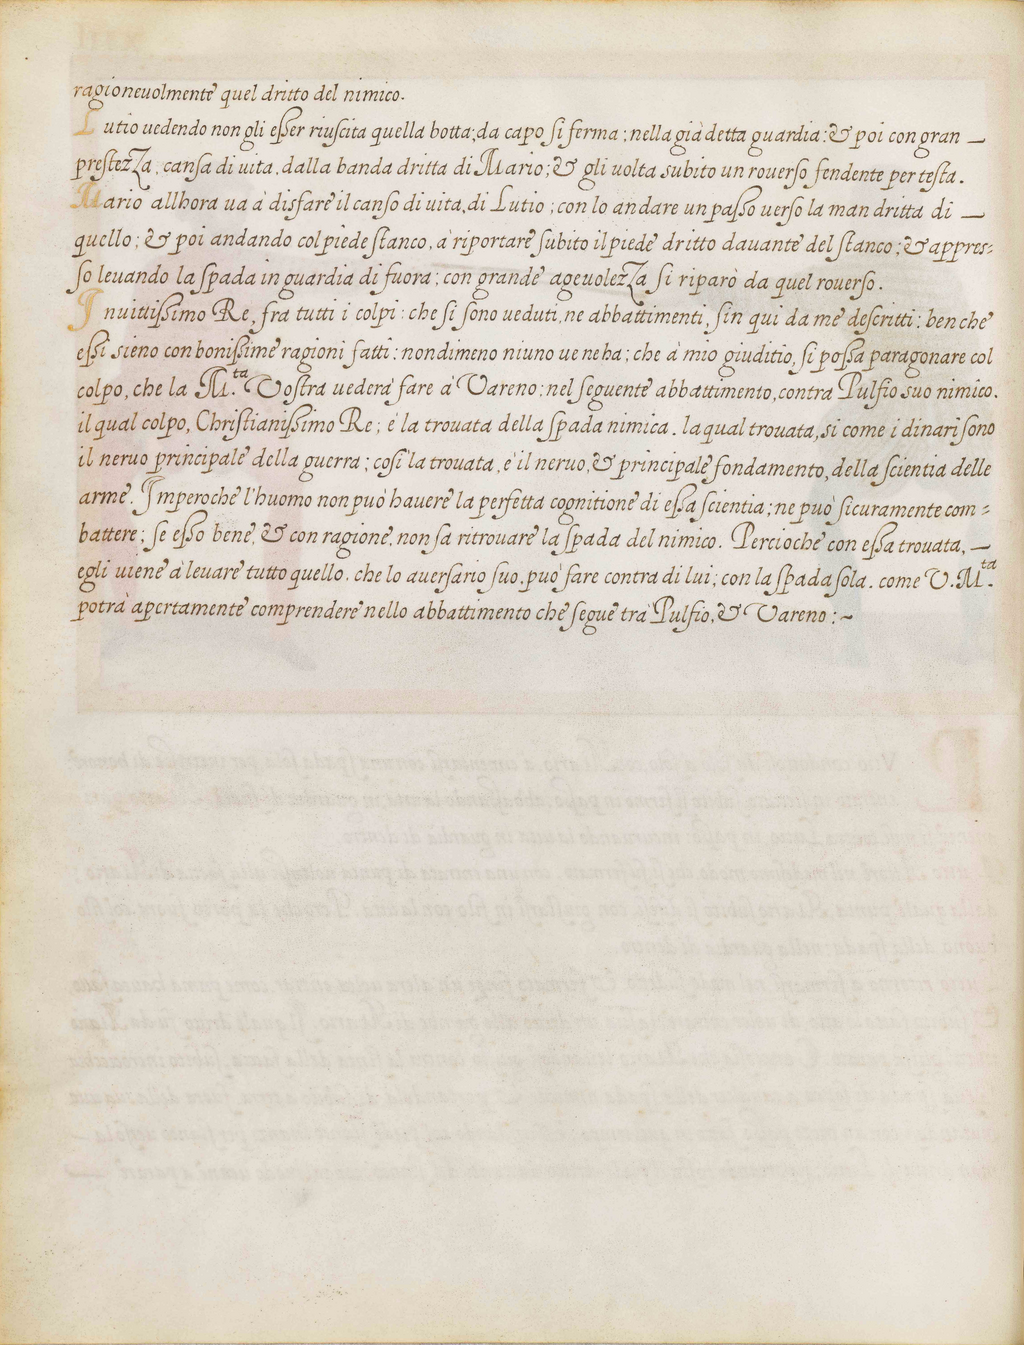 ragioneuolmente quel dritto del nimico.
Lutio uedendo non gli eßer riuscita quella botta; da capo si ferma; nella già detta guardia: & poi con gran —
prestezza, cansa di uita, dalla banda dritta di Mario; & gli uolta subito un rouerso fendente per testa.
Mario allhora ua à disfare il canso di uita, di Lutio; con lo andare un paßo uerso la man dritta di —
quello; & poi andando col piede stanco, à riportare subito il piede dritto dauante del stanco; & appres=
so leuando la spada in guardia di fuora; con grande ageuolezza si riparò da quel rouerso.
Inuittißimo Re, fra tutti i colpi: che si sono ueduti, ne abbattimenti, sin qui da me descritti: ben che
eßi sieno con bonißime ragioni fatti: nondimeno niuno ue ne ha; che à mio giuditio, si poßa paragonare col
colpo, che la M.ta Vostra uederà fare à Vareno; nel seguente abbattimento, contra Pulfio suo nimico.
il qual colpo, Christianißimo Re; é la trouata della spada nimica. la qual trouata, si come i dinari sono
il neruo principale della guerra; cosi la trouata, é il neruo, & principale fondamento, della scientia delle
arme. Imperoche l'huomo non può hauere la perfetta cognitione di eßa scientia; ne può sicuramente com=
battere; se eßo bene, & con ragione, non sa ritrouare la spada del nimico. Percioche con eßa trouata, —
egli uiene à leuare tutto quello. che lo auersario suo, può fare contra di lui; con la spada sola. come V. M.ta
potrà apertamente comprendere nello abbattimento che segue trà Pulfio, & Vareno: ~